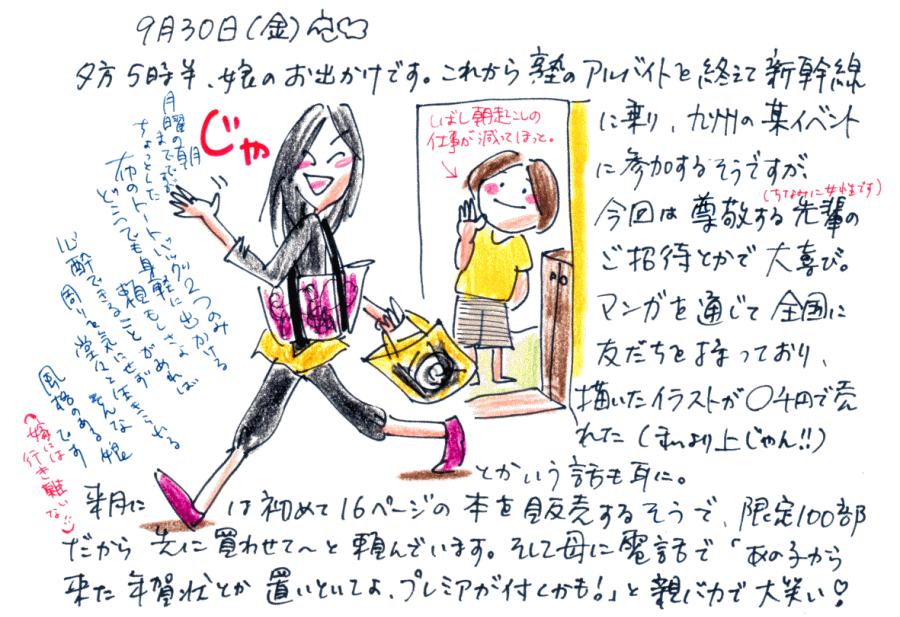 9月30日(金)
夕方5時半、娘のお出かけです。これから塾のアルバイトを終えて新幹線
に乗り、九州の某イベント
に参加するそうですが、
今回は尊敬する先輩の
(ちなみに女性です)
ご招待とかで大喜び。
マンガを通じて全国に
友だちを持っており、
描いたイラストが〇千円で売
れた(私より上じゃん!!)
とかいう話も耳に。
来月に
は初めて16ページの本を販売するそうで、限定100部
だから先に買わせて〜と頼んでいます。そして母に電話で「あの子から
来た年賀状とか置いといてよ、プレミアが付くかも!」と親バカで大笑い♡
じゃ
しばし朝起こしの
仕事が減ってほっと。
月曜の朝
までですが
ちょっとした
布のトートバック2つのみ
どこへでも身軽に出かける
頼もしさよ
心酔できることがあれば
周りを気にせず
堂々とはきちがえる
そんな娘
風格のある
です
嫁には
行き難いな